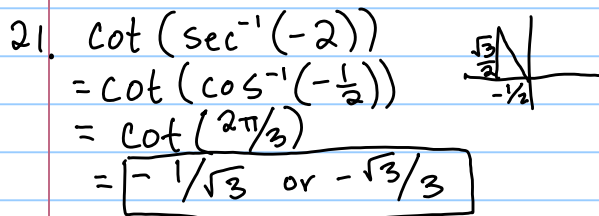 21. cot(sec⁻¹(-2))
= cot(cos⁻¹(-1/2))
= cot(2π/3)
= -1/√3 or -√3/3
√3/2
-1/2